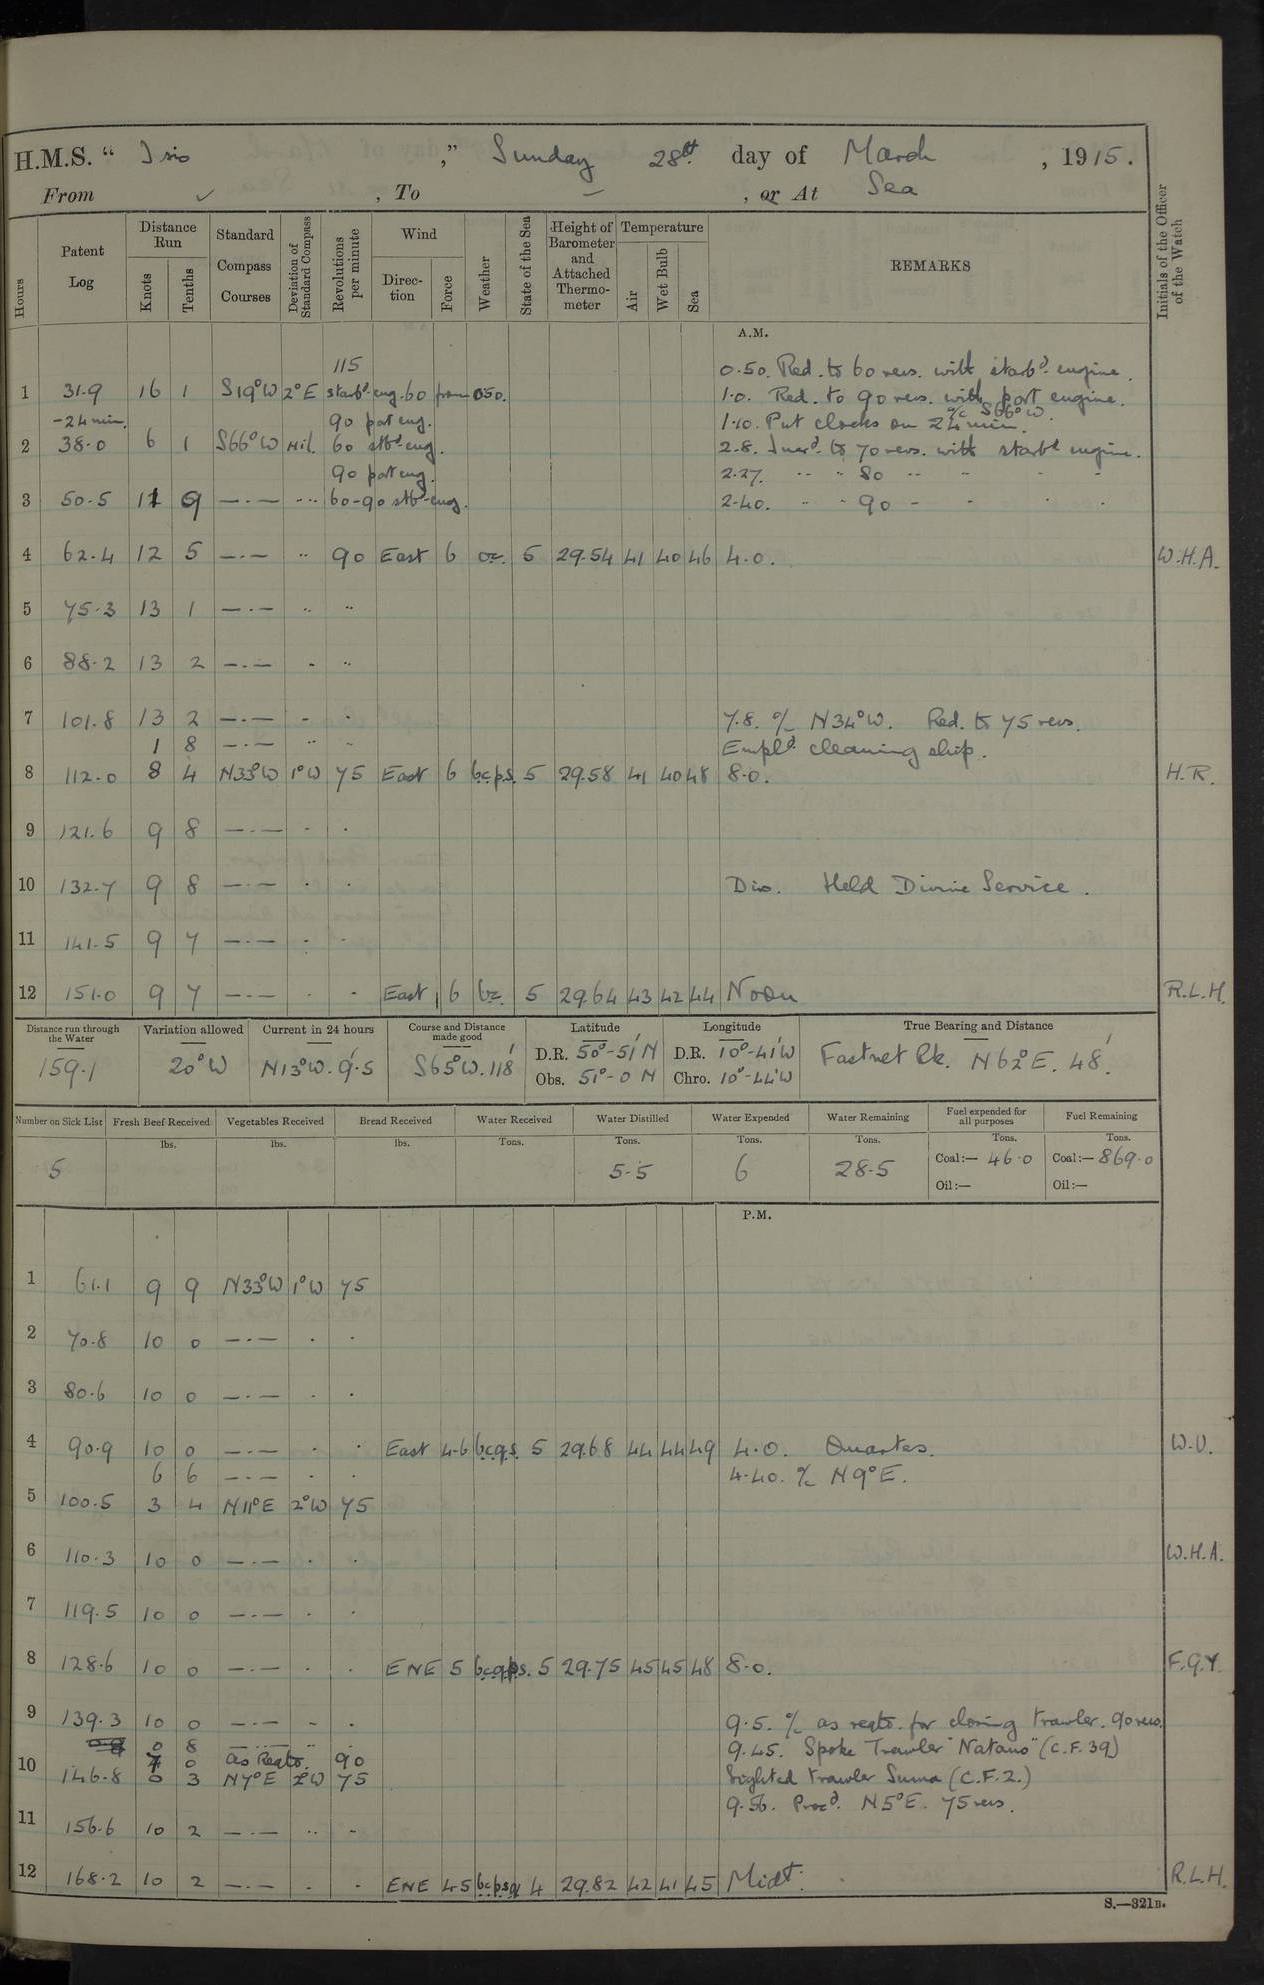 H.M.S. “ Isis ,” Sunday 28th day of March , 1915.
From ✓ , To — , or At Sea
Hours
Patent Log
Distance Run
Knots
Tenths
Standard Compass Courses
Deviation of Standard Compass
Revolutions per minute
Wind
Direction
Force
Weather
State of the Sea
Height of Barometer and Attached Thermometer
Temperature
Air
Wet Bulb
Sea
REMARKS
Initials of the Officer of the Watch
A.M.
115 0.50. Red. to 60 revs. with starbd. engine.
1 31.9 16 1 S19°W 2°E starbd. eng. 60 from 0.50. 1.0. Red. to 90 revs. with port engine.
-24 min. 90 port eng. 1.10. Put clocks on 24 min. a/c S66°W.
2 38.0 6 1 S66°W Nil. 60 stbd eng. 2.8. Incrd. to 70 revs. with starbd engine.
90 port eng. 2.27. " " 80 " - -
3 50.5 11 9 —·— ··· 60-90 stbd-eng. 2.40. " " 90 - - · ·
4 62.4 12 5 —·— ·· 90 East 6 oc. 5 29.54 41 40 46 4.0. W.H.A.
5 75.3 13 1 —·— ·· ··
6 88.2 13 2 —·— · ··
7 101.8 13 2 —·— · · 7.8. a/c N34°W. Red. to 75 revs.
1 8 —·— ·· · Empld. cleaning ship.
8 112.0 8 4 N33°W 1°W 75 East 6 bcps. 5 29.58 41 40 48 8.0. H.R.
9 121.6 9 8 —·— · ·
10 132.7 9 8 —·— · · Divs. Held Divine Service.
11 141.5 9 7 —·— · ·
12 151.0 9 7 —·— · · East 6 bc. 5 29.64 43 42 44 Noon R.L.H.
Distance run through the Water 159.1
Variation allowed 20°W
Current in 24 hours N13°W. 9.5'
Course and Distance made good S65°W. 118'
Latitude D.R. 50°-51'N Obs. 51°-0 N
Longitude D.R. 10°-41'W Chro. 10°-44'W
True Bearing and Distance Fastnet Rk. N62°E. 48'.
Number on Sick List 5
Fresh Beef Received lbs.
Vegetables Received lbs.
Bread Received lbs.
Water Received Tons.
Water Distilled Tons. 5.5
Water Expended Tons. 6
Water Remaining Tons. 28.5
Fuel expended for all purposes Tons. Coal:— 46.0 Oil:—
Fuel Remaining Tons. Coal:— 869.0 Oil:—
P.M.
1 61.1 9 9 N33°W 1°W 75
2 70.8 10 0 —·— · ·
3 80.6 10 0 —·— · ·
4 90.9 10 0 —·— · · East 4-6 bcqs. 5 29.68 44 44 49 4.0. Quarters. W.V.
6 6 —·— · · 4.40. a/c N9°E.
5 100.5 3 4 N11°E 2°W 75
6 110.3 10 0 —·— · · W.H.A.
7 119.5 10 0 —·— · ·
8 128.6 10 0 —·— · · ENE 5 bcqps. 5 29.75 45 45 48 8.0. F.G.Y.
9 139.3 10 0 —·— - · 9.5. a/c as reqto. for closing trawler. 90 revs.
0 8 —·— ·· · 9.45. Spoke Trawler "Natano" (C.F.39)
10 7 0 as Reqto. 90
146.8 0 3 N7°E 2°W 75 Sighted trawler Suma (C.F.2.)
9.56. Procd. N5°E. 75 revs.
11 156.6 10 2 —·— ·· -
12 168.2 10 2 —·— · · ENE 4-5 bcpsq 4 29.82 42 41 45 Midt. R.L.H.
S.—321B.